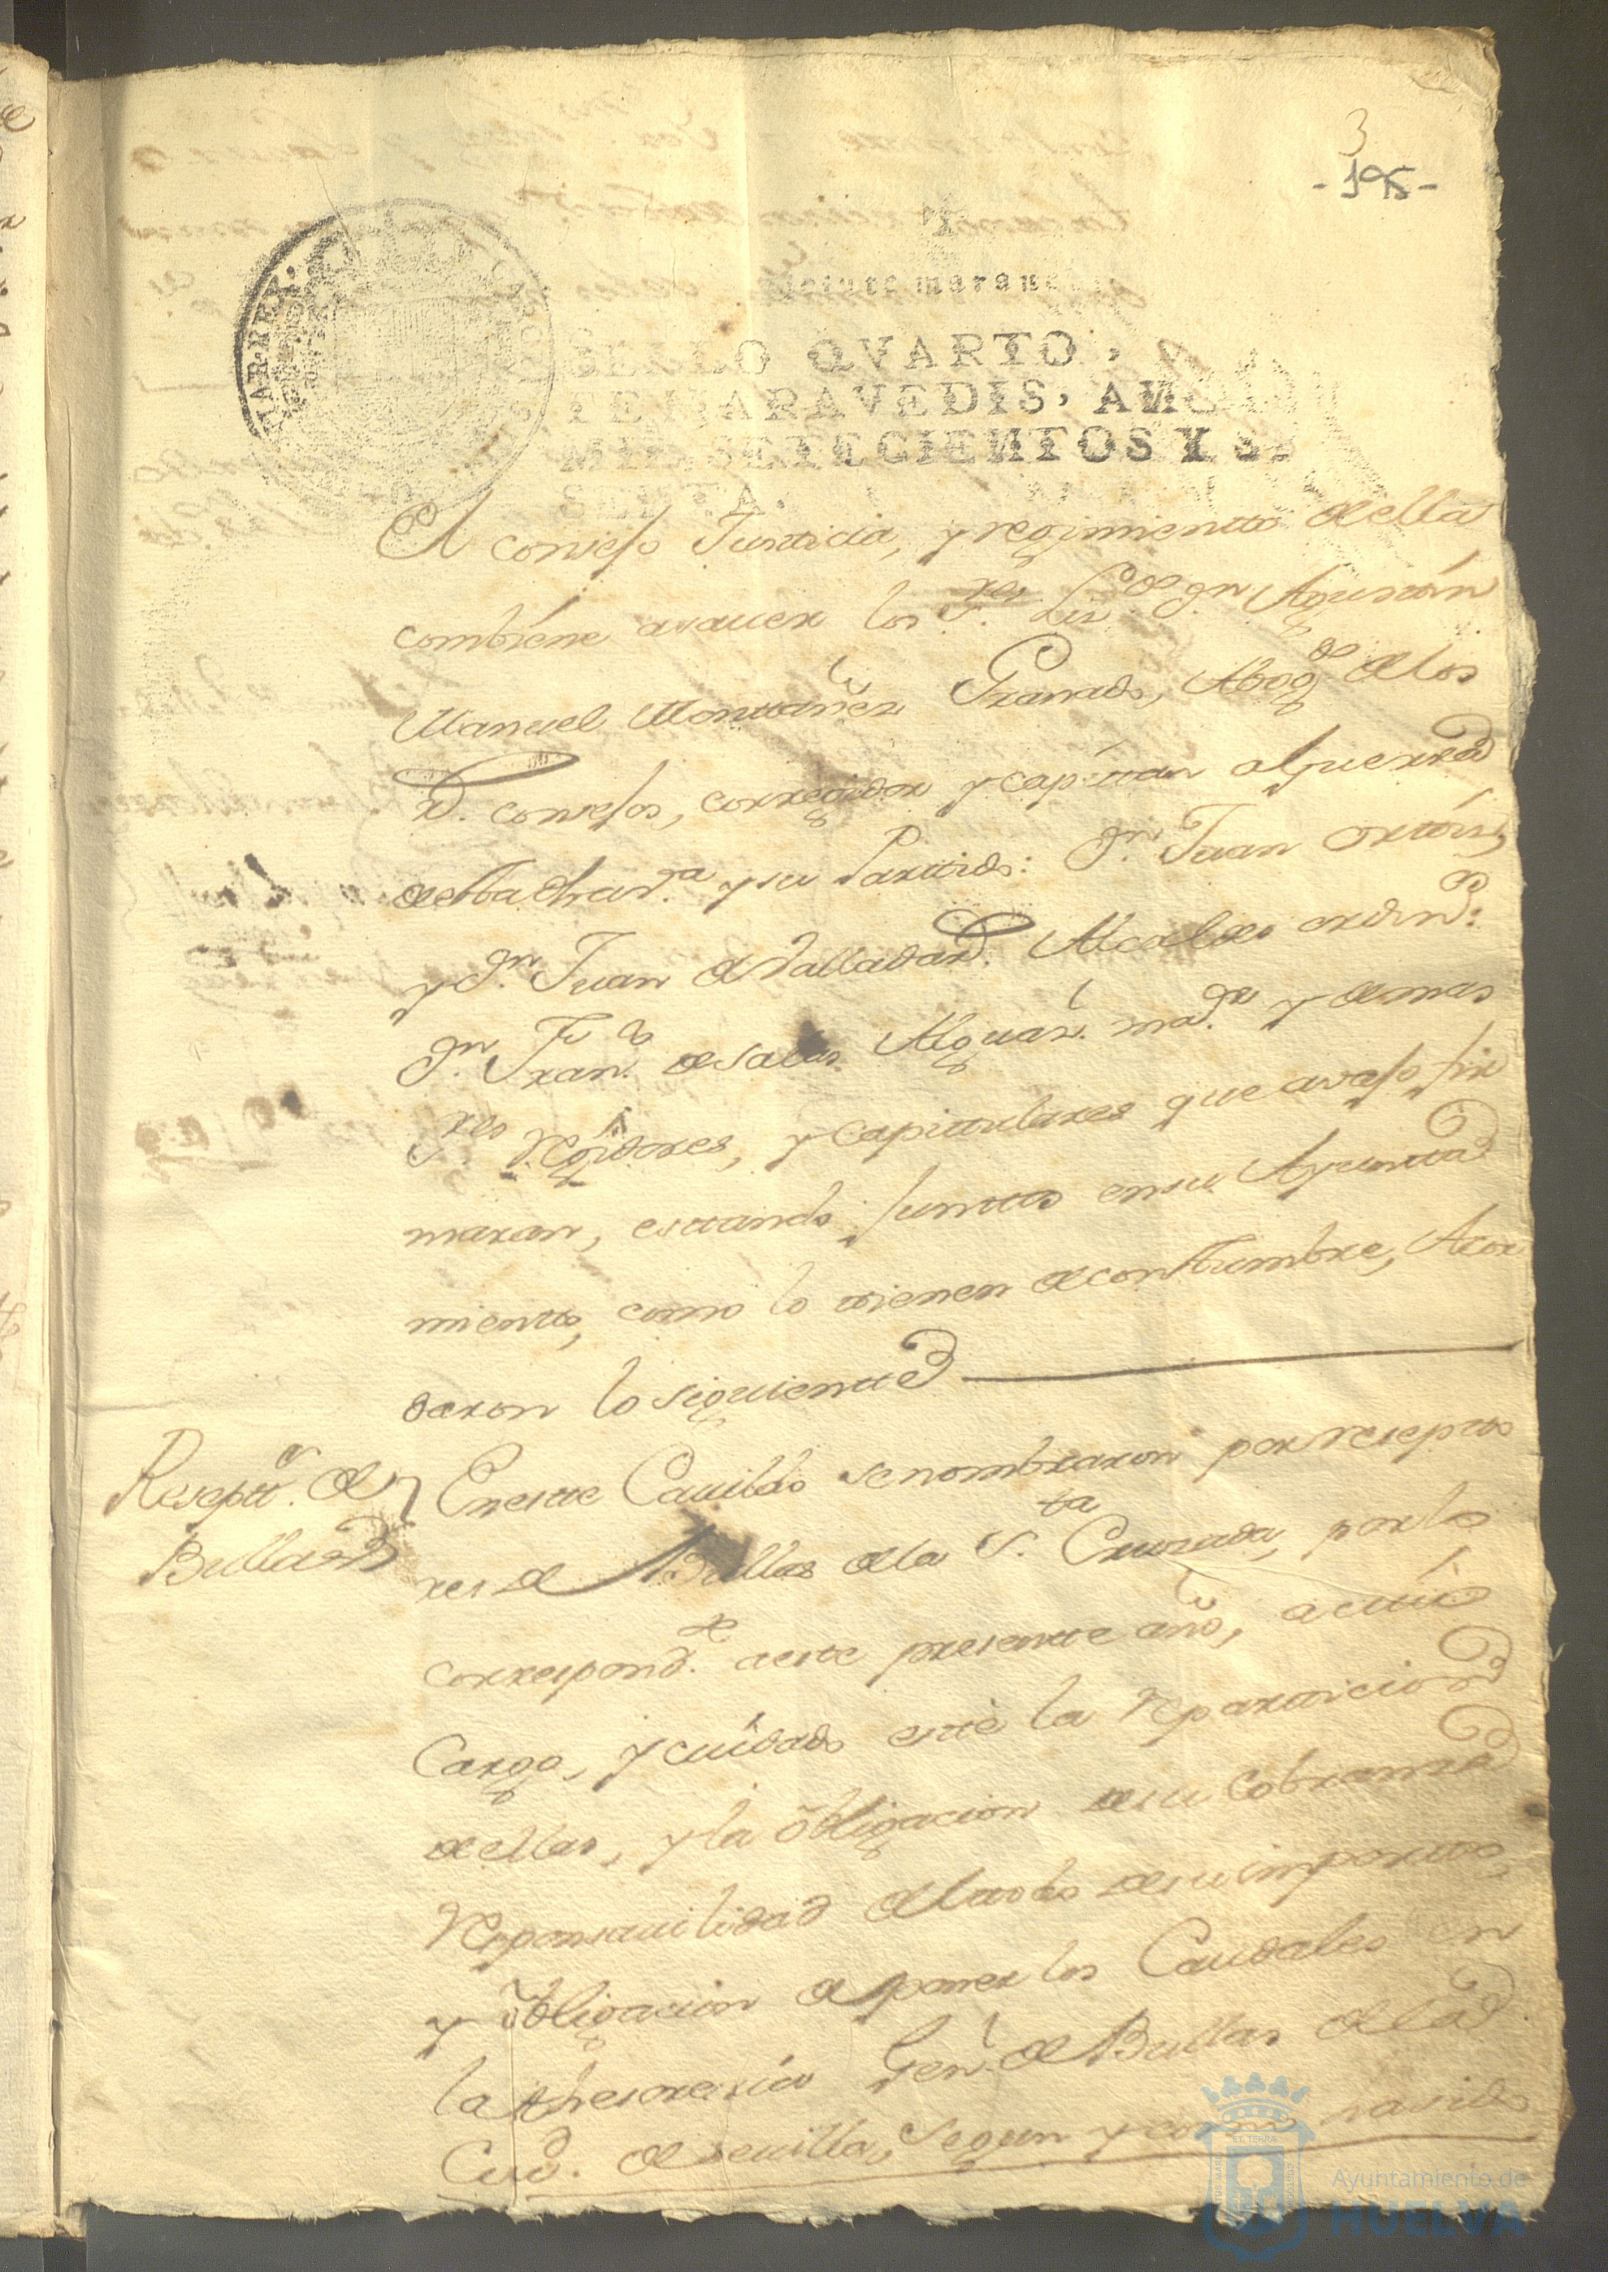 3
- 195 -
veinte maraned
SELLO QVARTO, V
TE MARAVEDIS, AÑO
MIL SETECIENTOS Y SE
SENTA.
El consejo Justicia, y regimiento de ella
combiéne asauer los S.res Liz.do Dn Agustín
Manuel Montañez Granado, Abog.do de los
R. consejos, corregidor y capitan aguerra
de esta dha v.a y su Partido: Dn Juan ortiz,
y Dn Juan de Vallador. Alcaldes ordin.
Dn Fran.co de Salas Alguaz.l ma.or y demas
S.res Rexidores, y capitulares que avajo fir
maran, estando juntos en su Ayunta
miento, como lo tienen de costumbre, Acor
daron lo siguiente
Resepto.r de
Bullas
En este Cauildo se nombraron por resepto
res de Bullas de la S.ta Cruzada, por lo
correspond.te a este presente año, a cuio
Cargo, y cuidado esté la Repartición
de ellas, y la obligacion de su Cobranza
Responsauilidad de todo de su importe,
y obligacion de poner los Caudales en
la thesorería Gen.l de Bullas de la
Ciud. de seuilla, segun y como ha sido
Ayuntamiento de
HUELVA